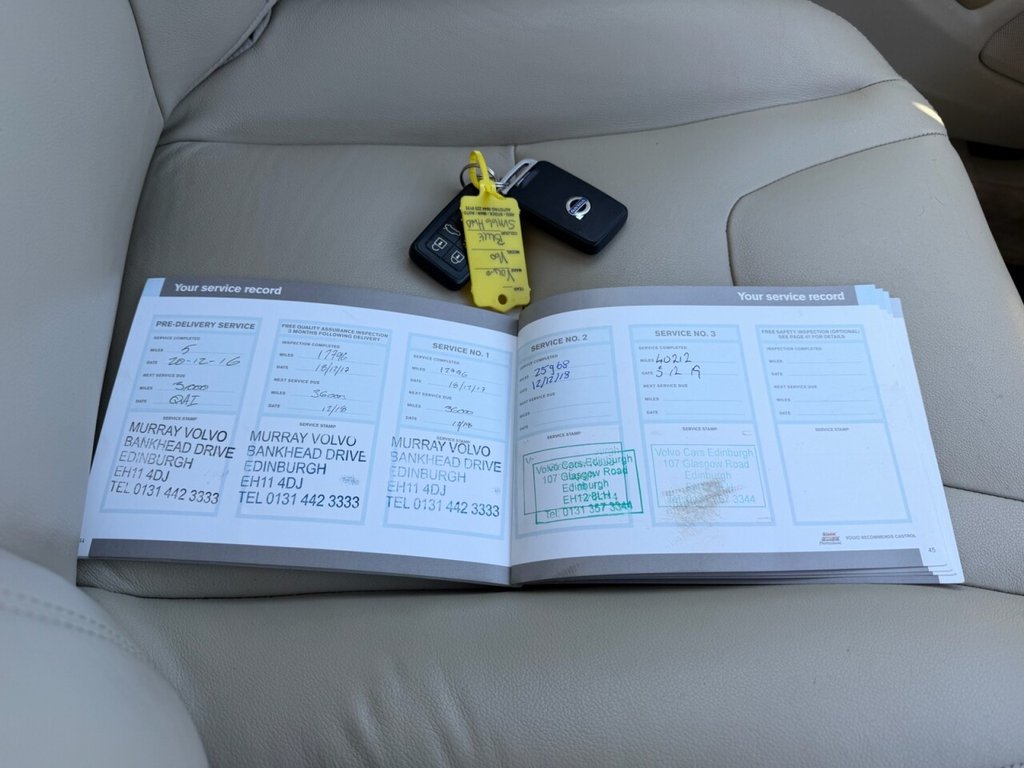 VOLVO
YEAR
MAKE Volvo
MODEL V60
COLOUR Blue
Your service record
PRE-DELIVERY SERVICE
SERVICE COMPLETED
MILES 5
DATE 20-12-16
NEXT SERVICE DUE
MILES
DATE
SERVICE STAMP
MURRAY VOLVO
BANKHEAD DRIVE
EDINBURGH
EH11 4DJ
TEL 0131 442 3333
FREE QUALITY ASSURANCE INSPECTION
3 MONTHS FOLLOWING DELIVERY
INSPECTION COMPLETED
MILES 17796
DATE 18/12/17
NEXT SERVICE DUE
MILES 36000
DATE 12/18
SERVICE STAMP
MURRAY VOLVO
BANKHEAD DRIVE
EDINBURGH
EH11 4DJ
TEL 0131 442 3333
SERVICE NO. 1
SERVICE COMPLETED
MILES 17796
DATE 18/12/17
NEXT SERVICE DUE
MILES 36000
DATE 12/18
SERVICE STAMP
MURRAY VOLVO
BANKHEAD DRIVE
EDINBURGH
EH11 4DJ
TEL 0131 442 3333
Your service record
SERVICE NO. 2
SERVICE COMPLETED
MILES 25968
DATE 12/12/18
NEXT SERVICE DUE
MILES
DATE
SERVICE STAMP
Volvo Cars Edinburgh
107 Glasgow Road
Edinburgh
EH12 8LH
Tel: 0131 357 3344
SERVICE NO. 3
SERVICE COMPLETED
MILES 40212
DATE 3 12 19
NEXT SERVICE DUE
MILES
DATE
SERVICE STAMP
Volvo Cars Edinburgh
107 Glasgow Road
Edinburgh
3344
FREE SAFETY INSPECTION (OPTIONAL)
SEE PAGE 47 FOR DETAILS
INSPECTION COMPLETED
MILES
DATE
NEXT SERVICE DUE
MILES
DATE
SERVICE STAMP
VOLVO RECOMMENDS CASTROL
45